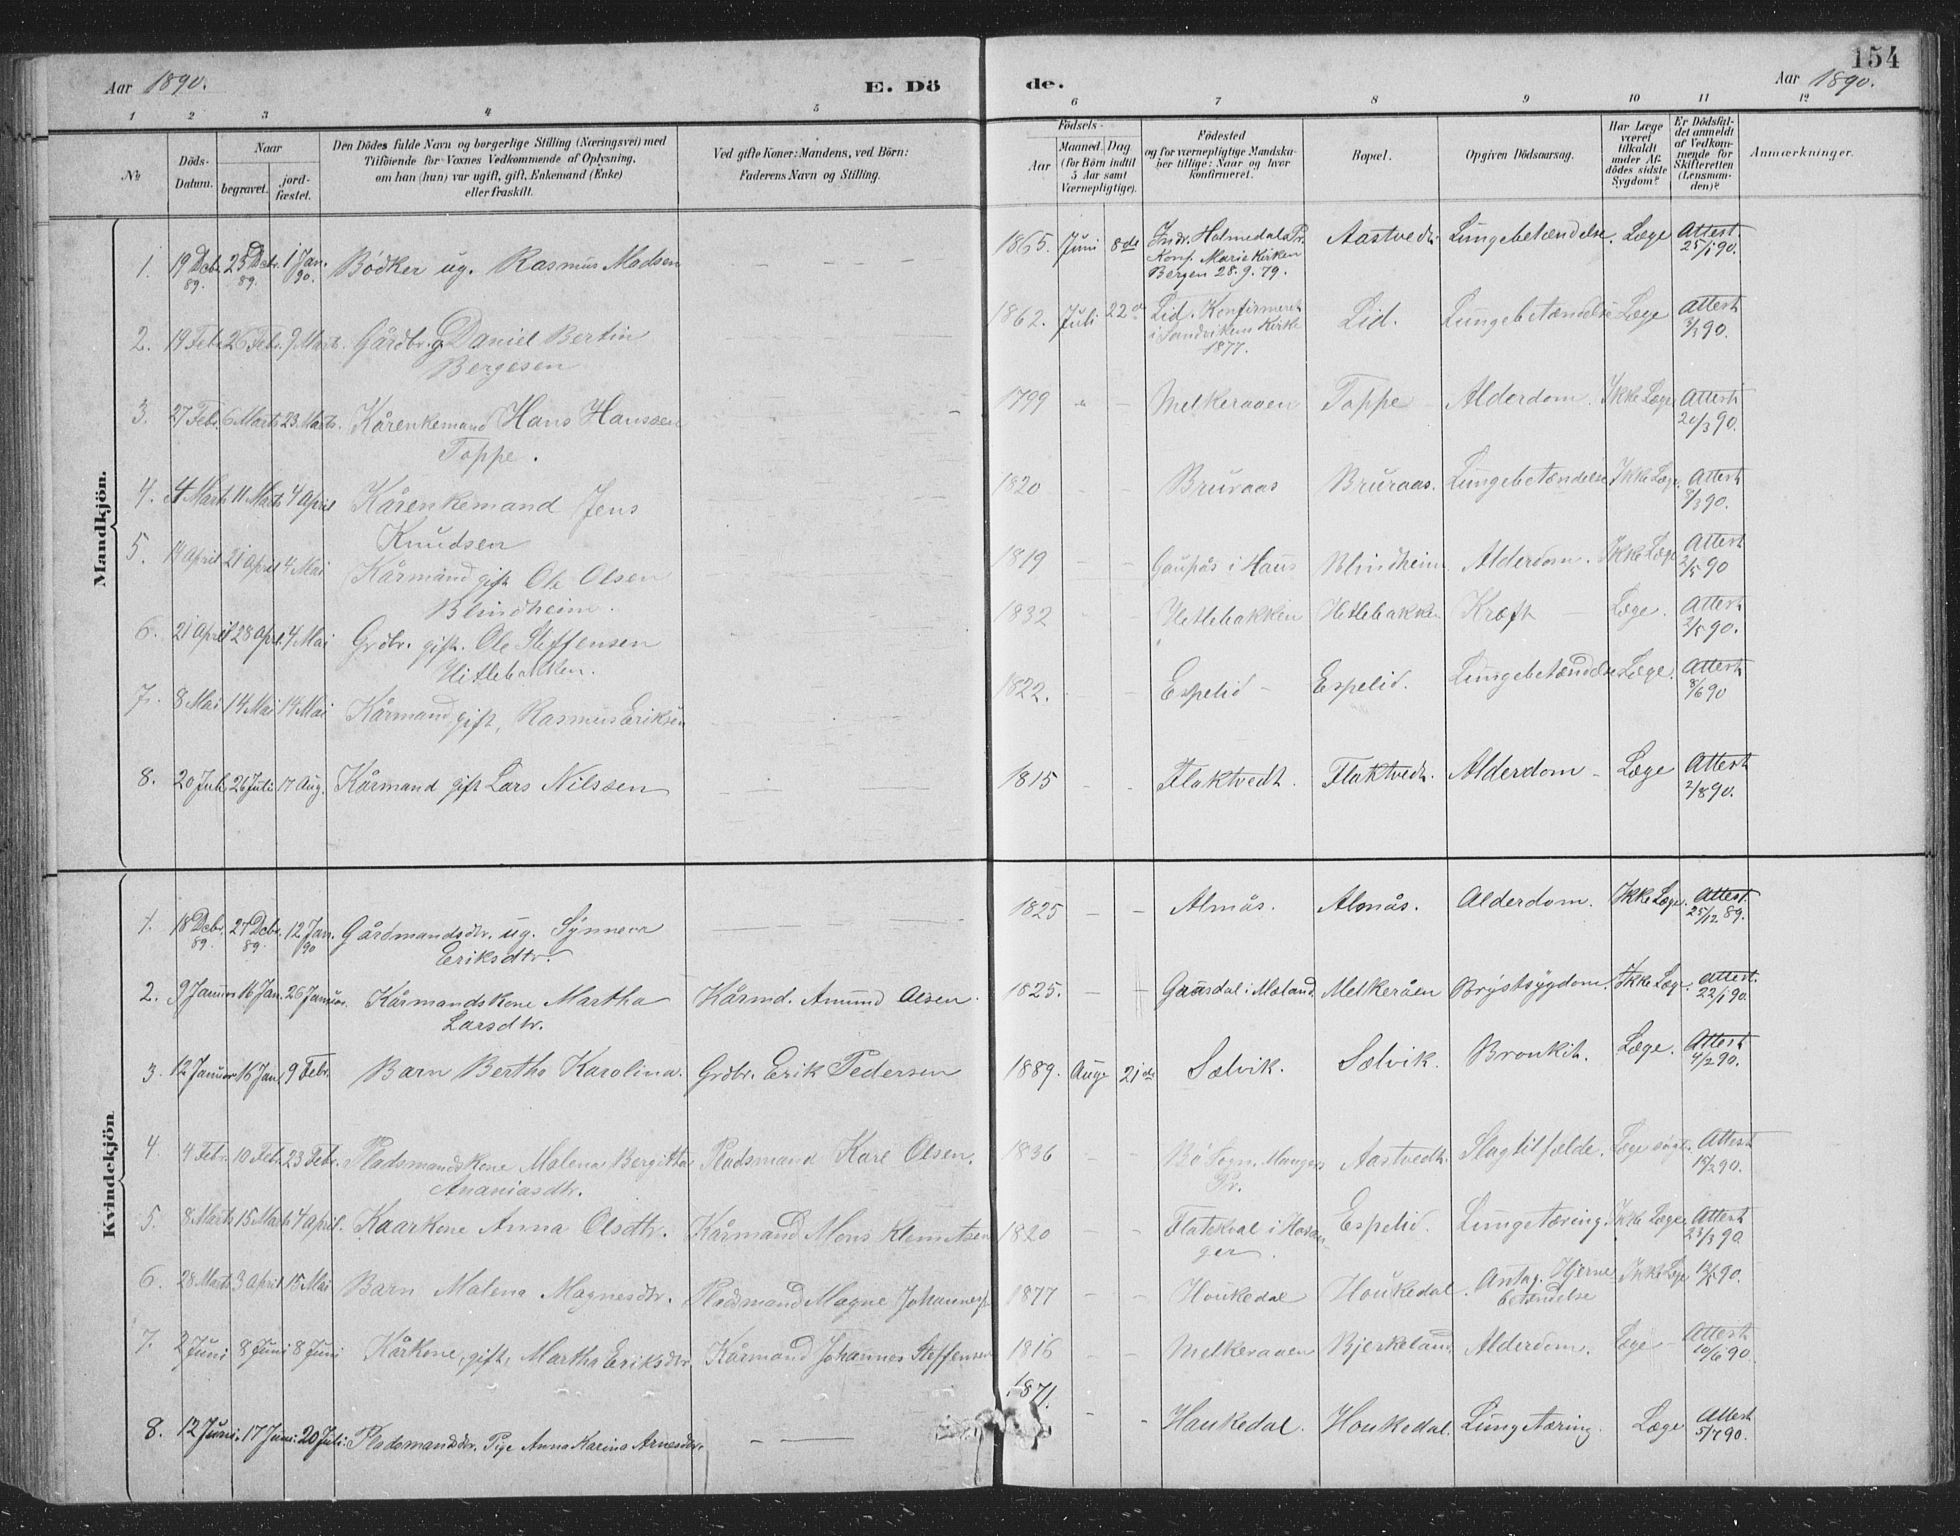 154
Aar 1890.
E. Dö
de.
Aar 1890.
1 2 3 4 5 6 7 8 9 10 11 12
No
Döds-Datum.
Naar
begravet.
jord-fæstet.
Den Dödes fulde Navn og borgerlige Stilling (Næringsvei) med
Tilföiende for Voxnes Vedkommende af Oplysning,
om han (hun) var ugift, gift, Enkemand (Enke)
eller fraskilt.
Ved gifte Koner: Mandens, ved Börn:
Faderens Navn og Stilling.
Födsels-
Aar
Maaned. (for Börn indtil 5 Aar samt Værnepligtige).
Dag
Födested
og for værnepligtige Mandska-
ber tillige: Naar og hvor
konfirmeret.
Bopæl.
Opgiven Dödsaarsag.
Har Læge været tilkaldt under Af-dödes sidste Sygdom?
Er Dödsfal-det anmeldt af Vedkom-mende for Skifteretten (Lensman-den)?
Anmærkninger.
Mandkjön.
1. 19 Dcbr. 89. 25 Dcbr. 89. 1 Jan. 90. Bödker ug. Rasmus Madsen 1865. Juni 8de Indr. Holmedals Pr. Konf. Marie Kirken Bergen 28.9.79. Aastvedt. Lungebetændelse. Læge Attest 25/1 90.
2. 19 Febr. 26 Febr. 9 Marts. Gårdbr. g Daniel Bertin 1862. Juli 22de Lid. Konfirmeret i Sandvikens Kirke 1877. Lid. Lungebetændelse Læge Attest 3/3 90.
Bergesen
3. 27 Febr. 6 Marts 23. Marts. Kårenkemand Hans Hanssen 1799 " - Melkeraaen Toppe Alderdom. Ikke Læge Attest 20/3 90.
Toppe.
4. 4 Marts 11 Marts 4 April Kårenkemand Jens 1820 - - Bruraas Bruraas. Lungebetændelse Ikke Læge. Attest 8/3 90.
Knudsen
5. 14 April 21 April 4 Mai Kårmand gift Ole Olsen 1819 - - Gaupås i Haus Blindheim Alderdom. Ikke Læge Attest 2/5 90
Blindheim.
6. 21 April 28 April 4 Mai Grdbr. gift. Ole Steffensen 1832 Hetlebakken Hetlebakken Kræft - Læge. Attest 2/5 90.
Hetlebakken.
7. 8 Mai 14 Mai 19 Mai Kårmand gift, Rasmus Eriksen 1822. - - Espelid - Espelid. Lungebetændelse Læge. Attest 8/6 90
8. 20 Juli 26 Juli 17 Aug. Kårmand gift Lars Nilssen 1815 - - Flaktvedt. Flaktvedt. Alderdom - Læge Attest 2/8 90.
Kvindekjön
1. 18 Dcbr. 89. 27 Dcbr. 89. 12 Jan. 90 Gårdmandsdtr. ug. Synneva 1825 - - Almås. Almås. Alderdom. Ikke Læge. Attest 25/12 89.
Eriksdtr.
2. 9 Januar 16 Jan. 26 Januar. Kårmandskone Martha Kårmd. Amund Olsen. 1825. - - Gausdal i Meland Melkeråen Brystsygdom. Ikke Læge. Attest 22/1 90.
Larsdtr.
3. 12 Januar 16 Jan 9 Febr. Barn Berthe Karolina. Grdbr. Erik Pedersen 1889. Aug 21de Sælvik. Sælvik. Bronkit. Læge. Attest 4/2 90.
4. 4 Febr. 10 Febr. 23 Febr. Pladsmandskone Malena Bergitha Pladsmand Karl Olsen. 1836 Bö Sogn. Mangers Pr. Aastvedt. Slagtilfælde. Læge søgt. Attest 15/2 90.
Ananiasdtr.
5. 8 Marts 15 Marts 4 April. Kaarkone Anna Olsdtr. Kårmand Mons Klemetsen 1820 - - Flatekval i Havanger. Espelid. Lungetæring. Ikke Læge Attest 23/3 90.
6. 28 Marts 3 April 15 Mai Barn Malena Magnesdtr. Pladsmand Magne Johannes. 1877 - - Houkedal Houkedal. Antag. Hjerne betændelse Ikke Læge 90.
7. 2 Juni 8 Juni 8 Juni Kårkone, gift, Martha Eriksdtr. Kårmand Johannes Steffensen 1816 - - Melkeraaen Bjerkeland Alderdom. Læge - Attest 10/6 90.
8. 12 Juni. 17 Juni. 20 Juli. Pladsmandsdtr. Pige Anna Karina Arnesdtr. 1871. - - Haukedal. Houkedal. Lungetæring. Læge Attest 5/7 90.